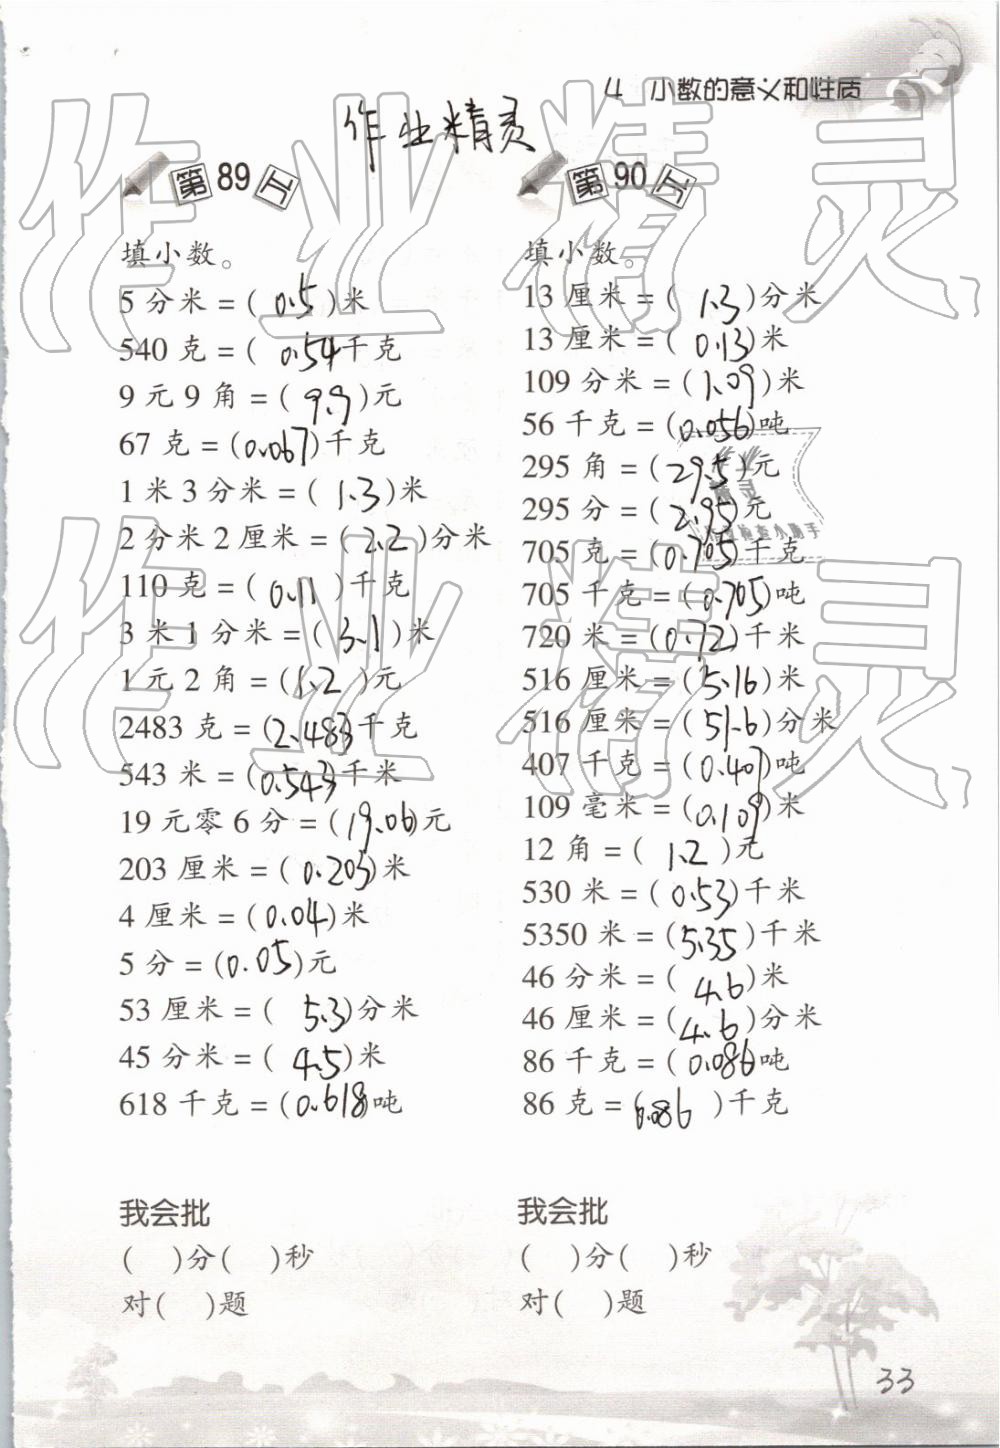 4 小数的意义和性质
作业精灵
第89页
填小数。
5分米=(0.5)米
540克=(0.54千克
9元9角=(9.9)元
67克=(0.067)千克
1米3分米=(1.3)米
2分米2厘米=(2.2)分米
110克=(0.11)千克
3米1分米=(3.1)米
1元2角=(1.2)元
2483克=(2.483千克
543米=(0.543千米
19元零6分=(19.06)元
203厘米=(0.203)米
4厘米=(0.04)米
5分=(0.05)元
53厘米=(5.3)分米
45分米=(4.5)米
618千克=(0.618吨
我会批
( )分( )秒
对( )题
第90页
填小数。
13厘米=(1.3)分米
13厘米=(0.13)米
109分米=(1.09)米
56千克=(0.056)吨
295角=(29.5)元
295分=(2.95)元
705克=(0.705)千克
705千克=(0.705)吨
720米=(0.72)千米
516厘米=(5.16)米
516厘米=(51.6)分米
407千克=(0.407)吨
109毫米=(0.109)米
12角=(1.2)元
530米=(0.53)千米
5350米=(5.35)千米
46分米=(4.6)米
46厘米=(4.6)分米
86千克=(0.086吨
86克=(0.086)千克
我会批
( )分( )秒
对( )题
33
作业精灵
作业精灵